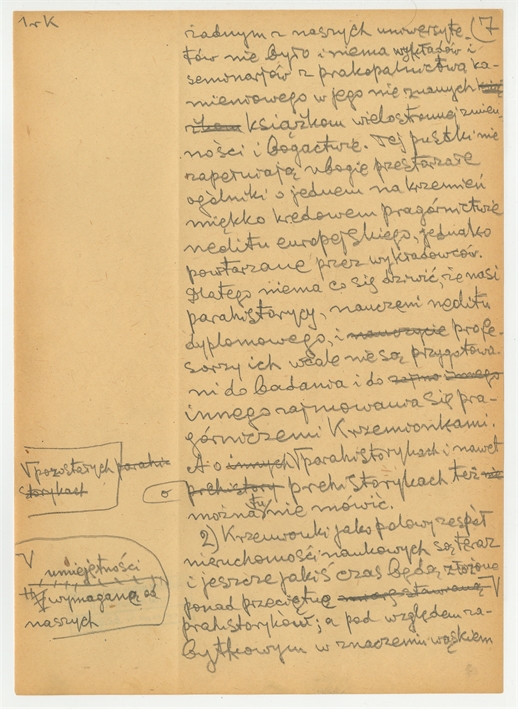 1rK
(7
żadnym z naszych uniwersyte-
tów nie było i niema wykładów i
seminarjów z prakopalnictwa ka-
mieniowego w jego nie znanych
książkom wielostronnej zmien-
ności i bogactwie. Tej pustki nie
zapełniają ubogie przestarzałe
ogólniki o jednem na krzemień
miękko kredowem pragórnictwie
neolitu europejskiego, jednako
powtarzane przez wykładowców.
Dlatego niema co się dziwić, że nasi
parahistorycy, nauczeni neolitu
dyplomowego, i nauczycie profe-
sorzy ich wcale nie są przygotowa-
ni do badania i do zajmo innego
innego zajmowania się pra-
górniczemi Krzemionkami.
A o innych V parahistorykach i nawet
prehistory prehistorykach też nie
można tu nie mówić.
2) Krzemionki jako polowy zespół
nieruchomości naukowych są teraz
i jeszcze jakiś czas będą złożone
ponad przeciętne V
prahistoryków; a pod względem za-
bytkowym w znaczeniu wąskiem
V pozostałych parahi-
storykach
o
V umiejętności
wymagane od
naszych